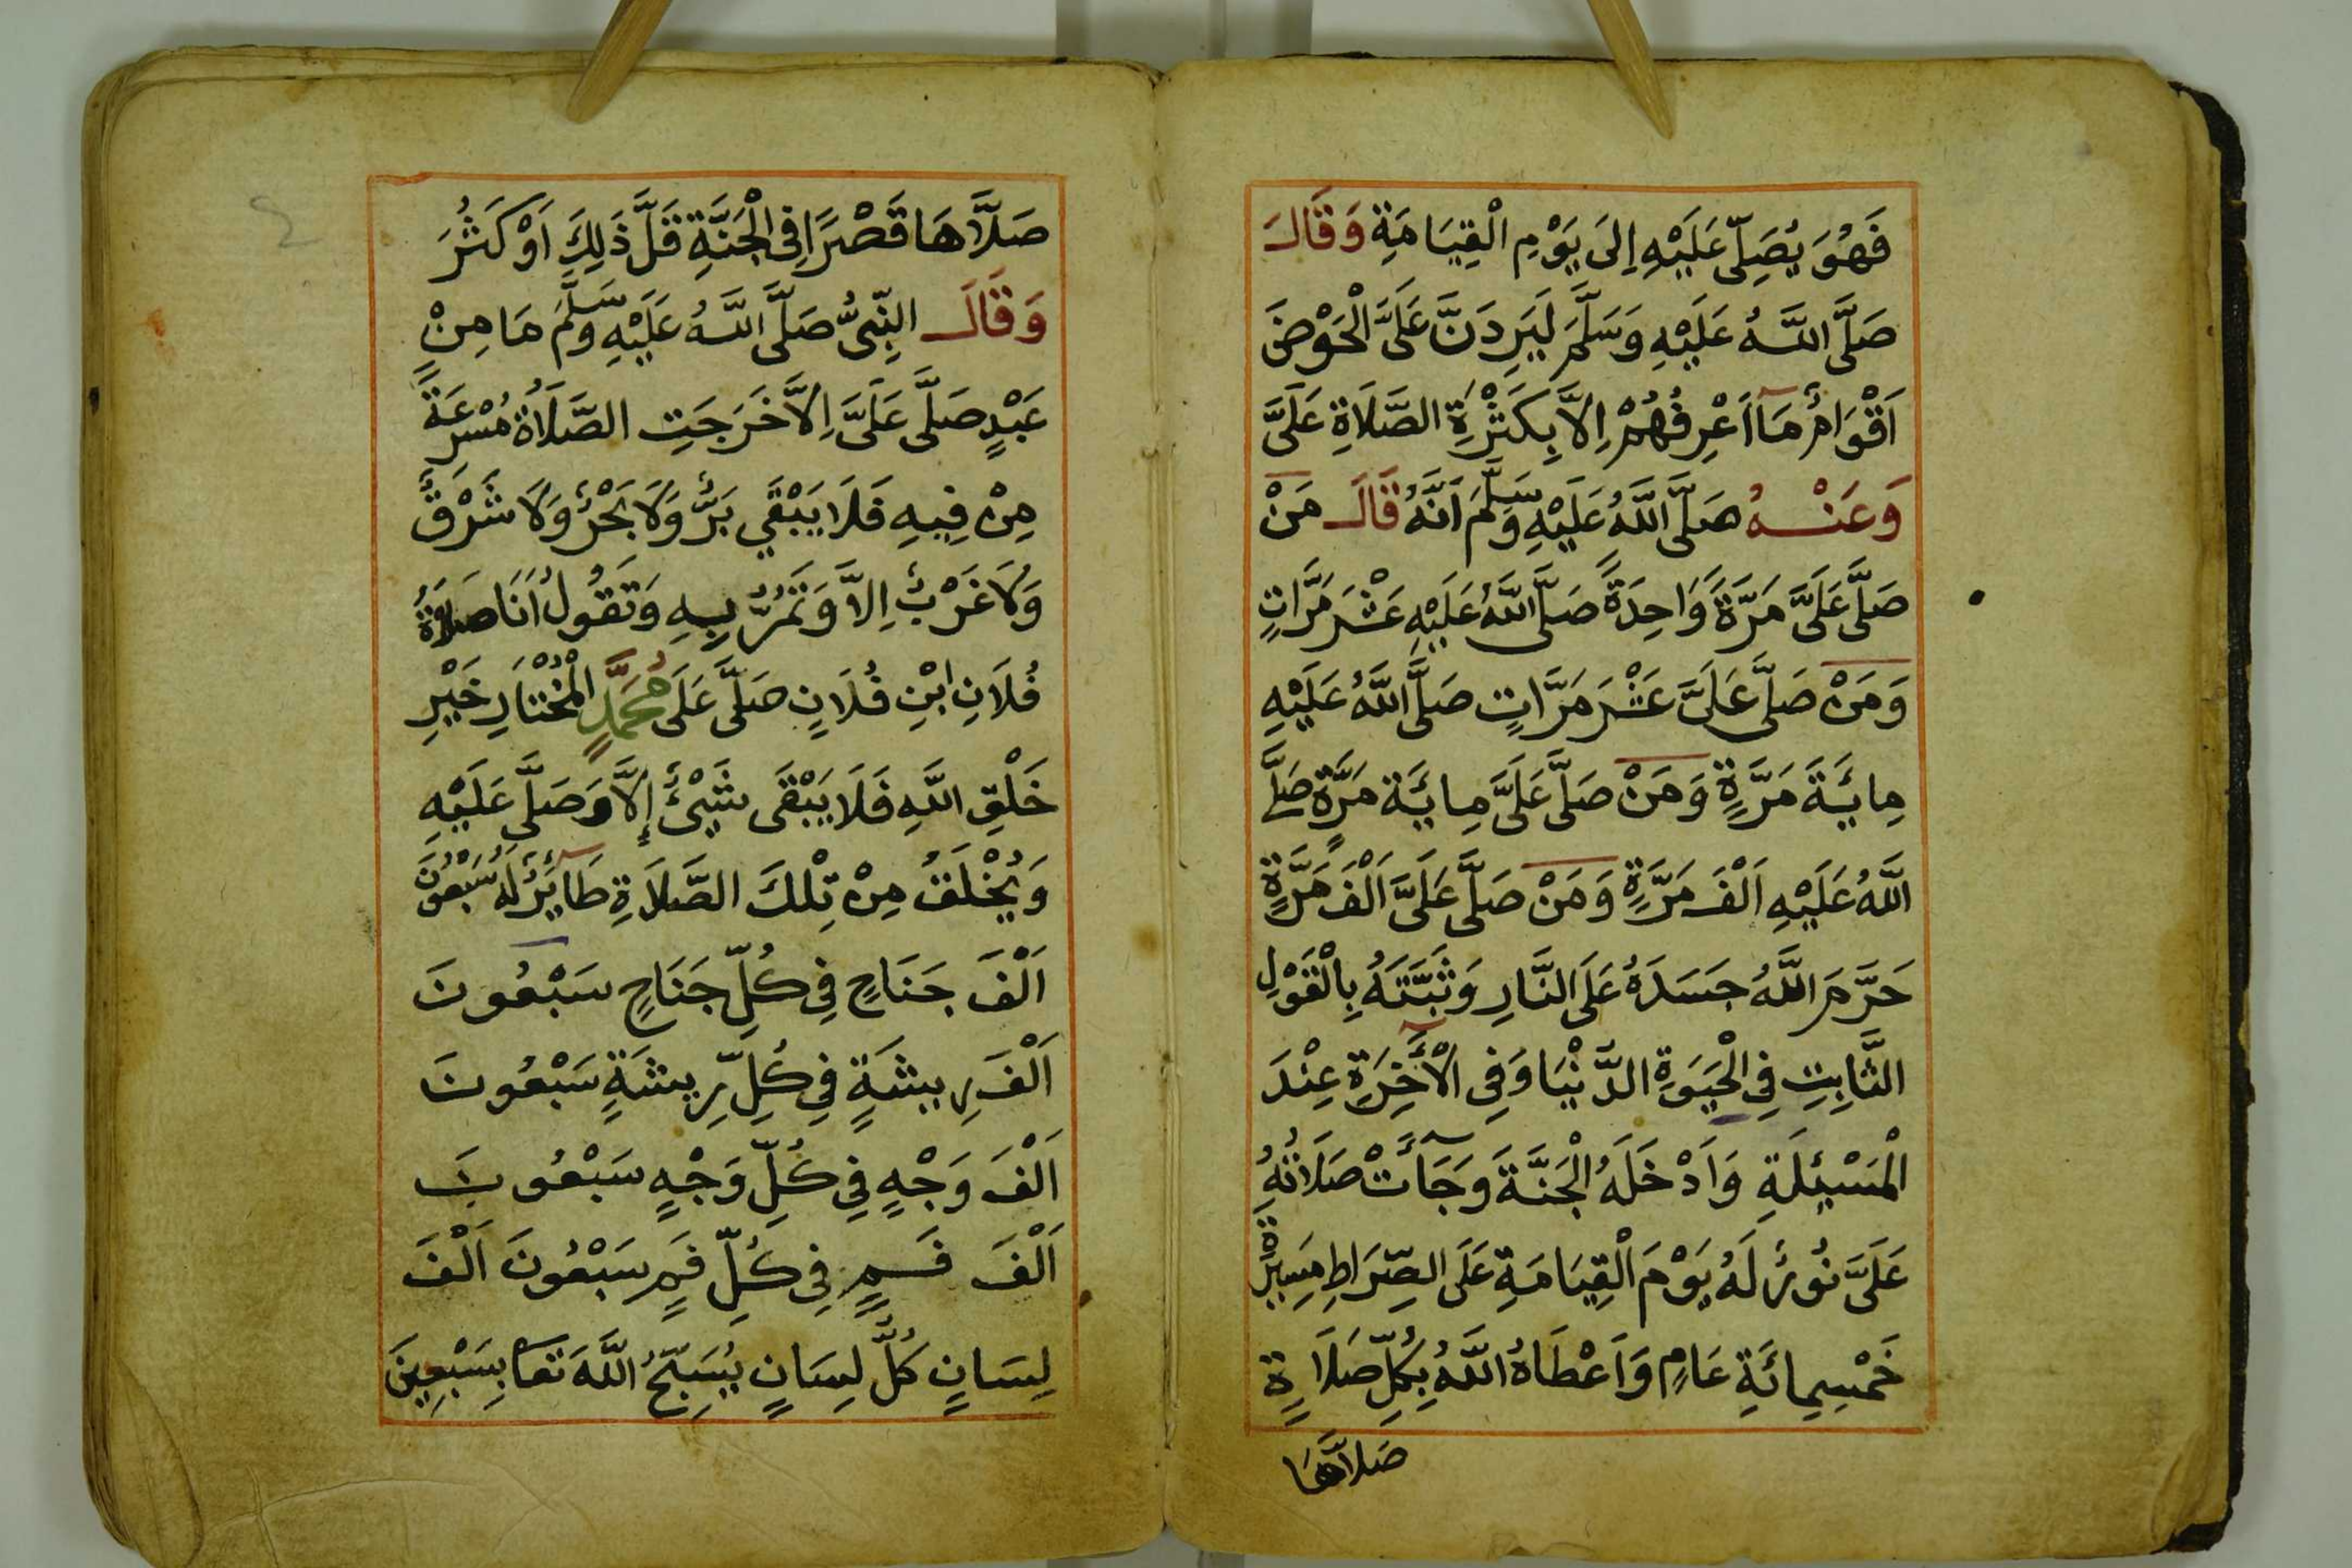 فَهُوَ يُصَلِّى عَلَيْهِ إِلَى يَوْمِ الْقِيَامَةِ وَقَالَ
صَلَّى اللَّهُ عَلَيْهِ وَسَلَّمَ لَيَرِدَنَّ عَلَىَّ الْحَوْضَ
اَقْوَامٌ مَآ اَعْرِفُهُمْ اِلاَّ بِكَثْرَةِ الصَّلَاةِ عَلَىَّ
وَعَنْهُ صَلَّى اللَّهُ عَلَيْهِ وَسَلَّمَ اَنَّهُ قَالَ مَنْ
صَلَّى عَلَىَّ مَرَّةً وَاحِدَةً صَلَّى اللَّهُ عَلَيْهِ عَشْرَ مَرَّاتٍ
وَمَنْ صَلَّى عَلَىَّ عَشْرَ مَرَّاتٍ صَلَّى اللَّهُ عَلَيْهِ
مِائَةَ مَرَّةٍ وَمَنْ صَلَّى عَلَىَّ مِائَةَ مَرَّةٍ صَلَّى
اللَّهُ عَلَيْهِ اَلْفَ مَرَّةٍ وَمَنْ صَلَّى عَلَىَّ اَلْفَ مَرَّةٍ
حَرَّمَ اللَّهُ جَسَدَهُ عَلَى النَّارِ وَثَبَّتَهُ بِالْقَوْلِ
الثَّابِتِ فِي الْحَيَوةِ الدُّنْيَا وَفِى الْآخِرَةِ عِنْدَ
الْمَسْئِلَةِ وَاَدْخَلَهُ الْجَنَّةَ وَجَآءَتْ صَلَاتُهُ
عَلَىَّ نُورٌ لَهُ يَوْمَ الْقِيَامَةِ عَلَى الصِّرَاطِ مَسِيرَةَ
خَمْسِمِائَةِ عَامٍ وَاَعْطَاهُ اللَّهُ بِكُلِّ صَلَاةٍ
صَلاَّهَا
صَلَّاهَا قَصْرًا فِى الْجَنَّةِ قَلَّ ذَلِكَ اَوْ كَثُرَ
وَقَالَ النَّبِىُّ صَلَّى اللَّهُ عَلَيْهِ وَسَلَّمَ مَا مِنْ
عَبْدٍ صَلَّى عَلَىَّ اِلاَّ خَرَجَتِ الصَّلَاةُ مُسْرِعَةً
مِنْ فِيهِ فَلَا يَبْقَي بَرٌّ وَلَا بَحْرٌ وَلَا شَرْقٌ
وَلَا غَرْبٌ اِلاَّ وَتَمُرُّ بِهِ وَتَقُولُ اَنَا صَلَاةُ
فُلَانِ ابْنِ فُلَانٍ صَلَّى عَلَى مُحَمَّدٍ الْمُخْتَارِ خَيْرِ
خَلْقِ اللَّهِ فَلَا يَبْقَى شَيْئٌ إِلاَّ وَصَلَّى عَلَيْهِ
وَيُخْلَقُ مِنْ تِلْكَ الصَّلَاةِ طَآئِرٌ لَهُ سَبْعُونَ
اَلْفَ جَنَاحٍ فِي كُلِّ جَنَاحٍ سَبْعُونَ
اَلْفَ رِيشَةٍ فِي كُلِّ رِيشَةٍ سَبْعُونَ
اَلْفَ وَجْهٍ فِي كُلِّ وَجْهٍ سَبْعُونَ
اَلْفَ فَمٍ فِي كُلِّ فَمٍ سَبْعُونَ اَلْفَ
لِسَانٍ كُلُّ لِسَانٍ يُسَبِّحُ اللَّهَ تَعَا بِسَبْعِينَ